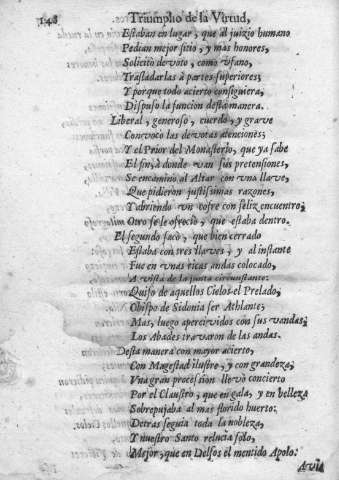 148 Triumpho de la Virtud,
Estaban en lugar, que al juizio humano
Pedian mejor sitio, y mas honores,
Solicitò devoto, como vfano,
Trasladarlas à partes superiores;
Y porque todo acierto consiguiera,
Dispuso la funcion desta manera.
Liberal, generoso, cuerdo, y grave
Convocò las devotas atenciones;
Y el Prior del Monasterio, que ya sabe
El fin, à donde van sus pretensiones,
Se encaminò al Altar con vna llave,
Que pidieron justissimas razones,
Y abriendo vn cofre con feliz encuentro,
Otro se le ofreciò, que estaba dentro.
El segundo sacò, que bien cerrado
Estaba con tres llaves, y al instante
Fue en vnas ricas andas colocado,
A vista de la junta circunstante:
Quiso de aquellos Cielos el Prelado,
Obispo de Sidonia ser Athlante;
Mas, luego apercividos con sus vandas,
Los Abades travaron de las andas.
Desta manera con mayor acierto,
Con Magestad ilustre, y con grandeza,
Vna gran procession llevò concierto
Por el Claustro, que en gala, y en belleza
Sobrepujaba al mas florido huerto:
Detras seguia toda la nobleza,
Y nuestro Santo relucia solo,
Mejor, que en Delfos el mentido Apolo: